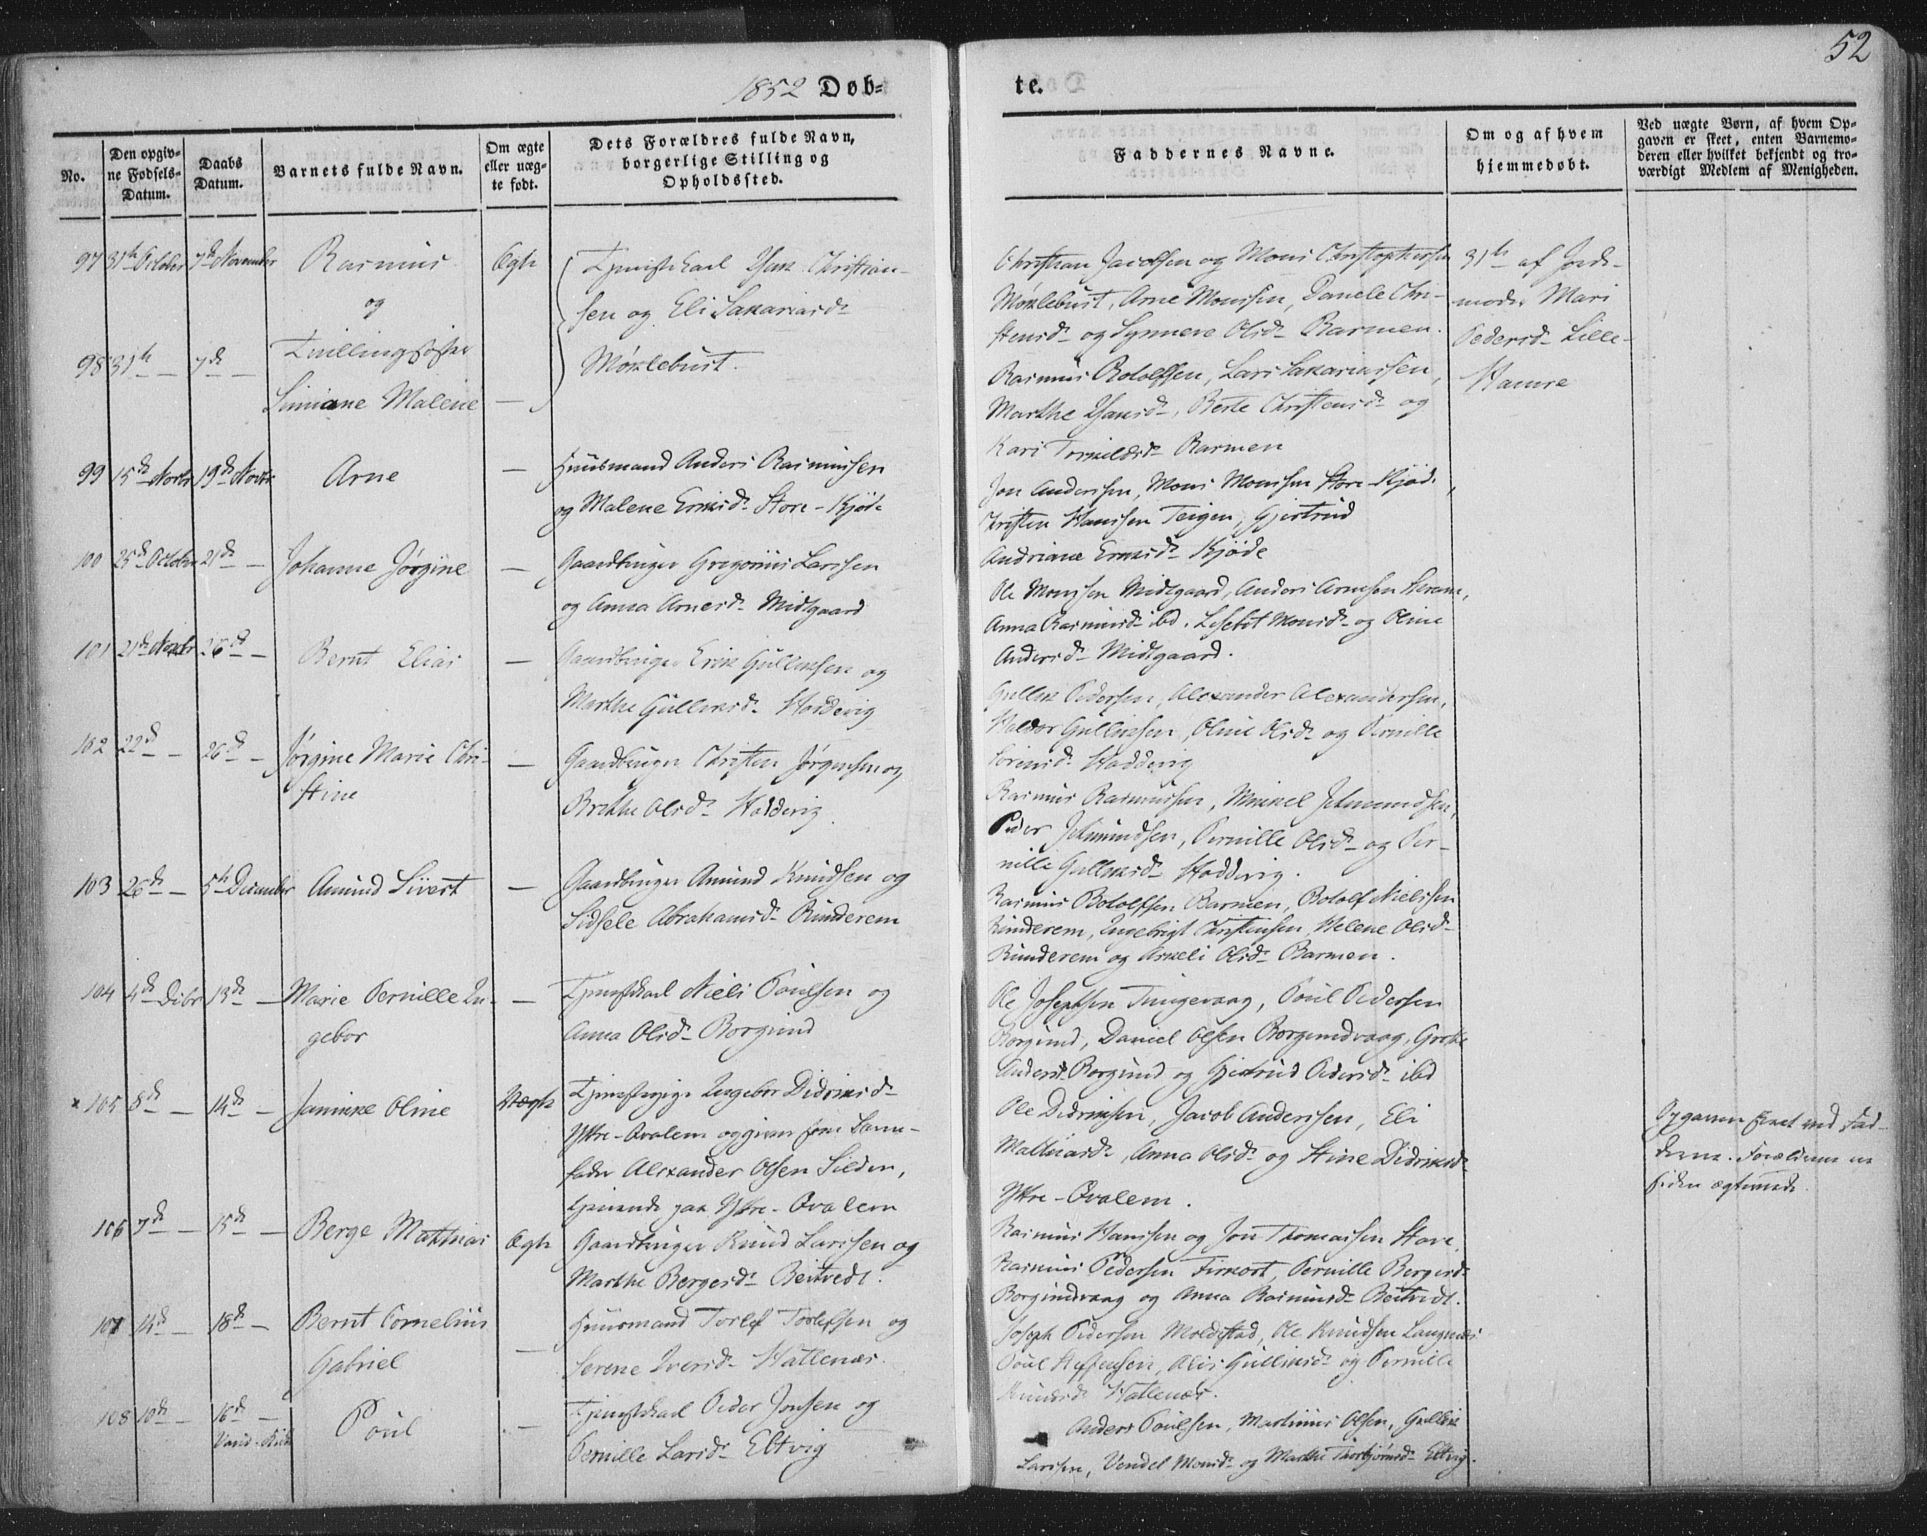 52
1852 Døb-
te.
No.
Den opgiv-
ne Fødsels-
Datum.
Daabs
Datum.
Barnets fulde Navn.
Om ægte
eller uæg-
te født.
Dets Forældres fulde Navn,
borgerlige Stilling og
Opholdssted.
Faddernes Navne.
Om og af hvem
hjemmedøbt.
Ved uægte Børn, af hvem Op-
gaven er skeet, enten Barnemo-
deren eller hvilket bekjendt og tro-
værdigt Medlem af Menigheden.
97 31te October 7de November Rasmus Ægte Tjenestekarl Isak Christian-
og sen og Eli Sakariasd.
98 31te — 7de — Tvillingsøster Møklebust.
Simiane Malene —
Christian Jacobsen og Mons Christophersen
Møklebust, Arne Monssen, Danele Chri-
stensd. og Synneve Olsd. Barmen.
Rasmus Botolfsen, Lars Sakariassen,
Marthe Hansd., Berte Christensd. og
Kari Barmen
31te af Jorde-
moder Mari
Pedersd. Lille-
Hamre
99 15de Novbr 19de Novbr Arne — Huusmand Anders Rasmussen
og Malene Eriksd. Store-Kjøde
Jon Anderssen, Mons Monssen Store-Kjøde,
Christen Hanssen Teigen, Gjertrud
Andriane Eriksd. Kjøde
100 25de October 21de — Johanne Jørgine — Gaardbruger Gregorius Larssen
og Anna Arnesd. Midtgaard
Ole Monssen Midtgaard, Anders Arnesen
Anna Rasmusd. ibd. Lisebet Monsd. og Oline
Andersd. Midtgaard.
101 21de Novbr 26de — Bernt Elias — Gaardbruger Erik Gulliksen og
Marthe Gulliksd. Hoddevig
Gullik Pedersen, Alexander Alexandersen,
Haldor Gulliksen, Oline Olsd. og Pernille
Hoddevig
102 22de — 26de — Jørgine Marie Chri- — Gaardbruger Christen Jørgensen og
stine Brithe Olsd. Hoddevig.
Rasmus Rasmussen, Mikkel Jetmundsen,
Peder Jetmundsen, Pernille Olsd. og Per-
nille Gulliksd. Hoddevig.
103 26de — 5te December Amund Sivert — Gaardbruger Amund Knudsen og
Sidsele Abrahamsd. Runderem
Rasmus Botolfsen Barmen, Botolf Nielssen
Runderem, Ingebrigt Christensen, Helene Olsd.
Runderem og Olsd. Barmen.
104 4de Dcbr 13de — Marie Pernille In- — Tjenestekarl Niels Poulsen og
gebor Anna Olsd. Borgund
Ole Josephsen Tungevaag, Poul Pedersen
Borgund, Daniel Olsen Borgundvaag, Grethe
Andersd. Borgund og Gjertrud Pedersd. ibd
× 105 8de — 14de — Jannike Oline Uægte Tjenestepige Ingebor Didriksd.
Ytre-Qvalem opgiven som Barne-
fader Alexander Olsen Silden,
tjenende paa Ytre-Qvalem
Ole Didriksen, Jacob Anderssen, Eli
Mathiasd., Anna Olsd. og Stine Didriksd.
Ytre-Qvalem.
Opgaven skeet ved Fad-
derne. Forældrene ere
siden ægteviede.
106 7de — 15de — Berge Mathias Ægte Gaardbruger Knud Larssen og
Marthe Bergesd. Beitvedt.
Rasmus Hanssen og Jon Thomassen Hove,
Rasmus Pedersen Pernille Bergesd.
Borgundvaag og Anna Rasmusd. Beitvedt.
107 14de — 18de — Bernt Cornelius — Huusmand Torlef Torlefsen og
Gabriel Serene Iversd. Hattenæs.
Joseph Pedersen Moldestad, Ole Knudsen Langenæs
Poul Steffensen, Gulliksd. og Pernille
Knudsd. Hattenæs.
108 10de — 16de — Poul — Tjenestekarl Peder Jonsen og
Pernille Larsd. Eltvig
Anders Poulsen, Martinus Olsen, Gullik
Larssen, Vendel Monsd. og Marthe Thorbjørnsd. Eltvig.